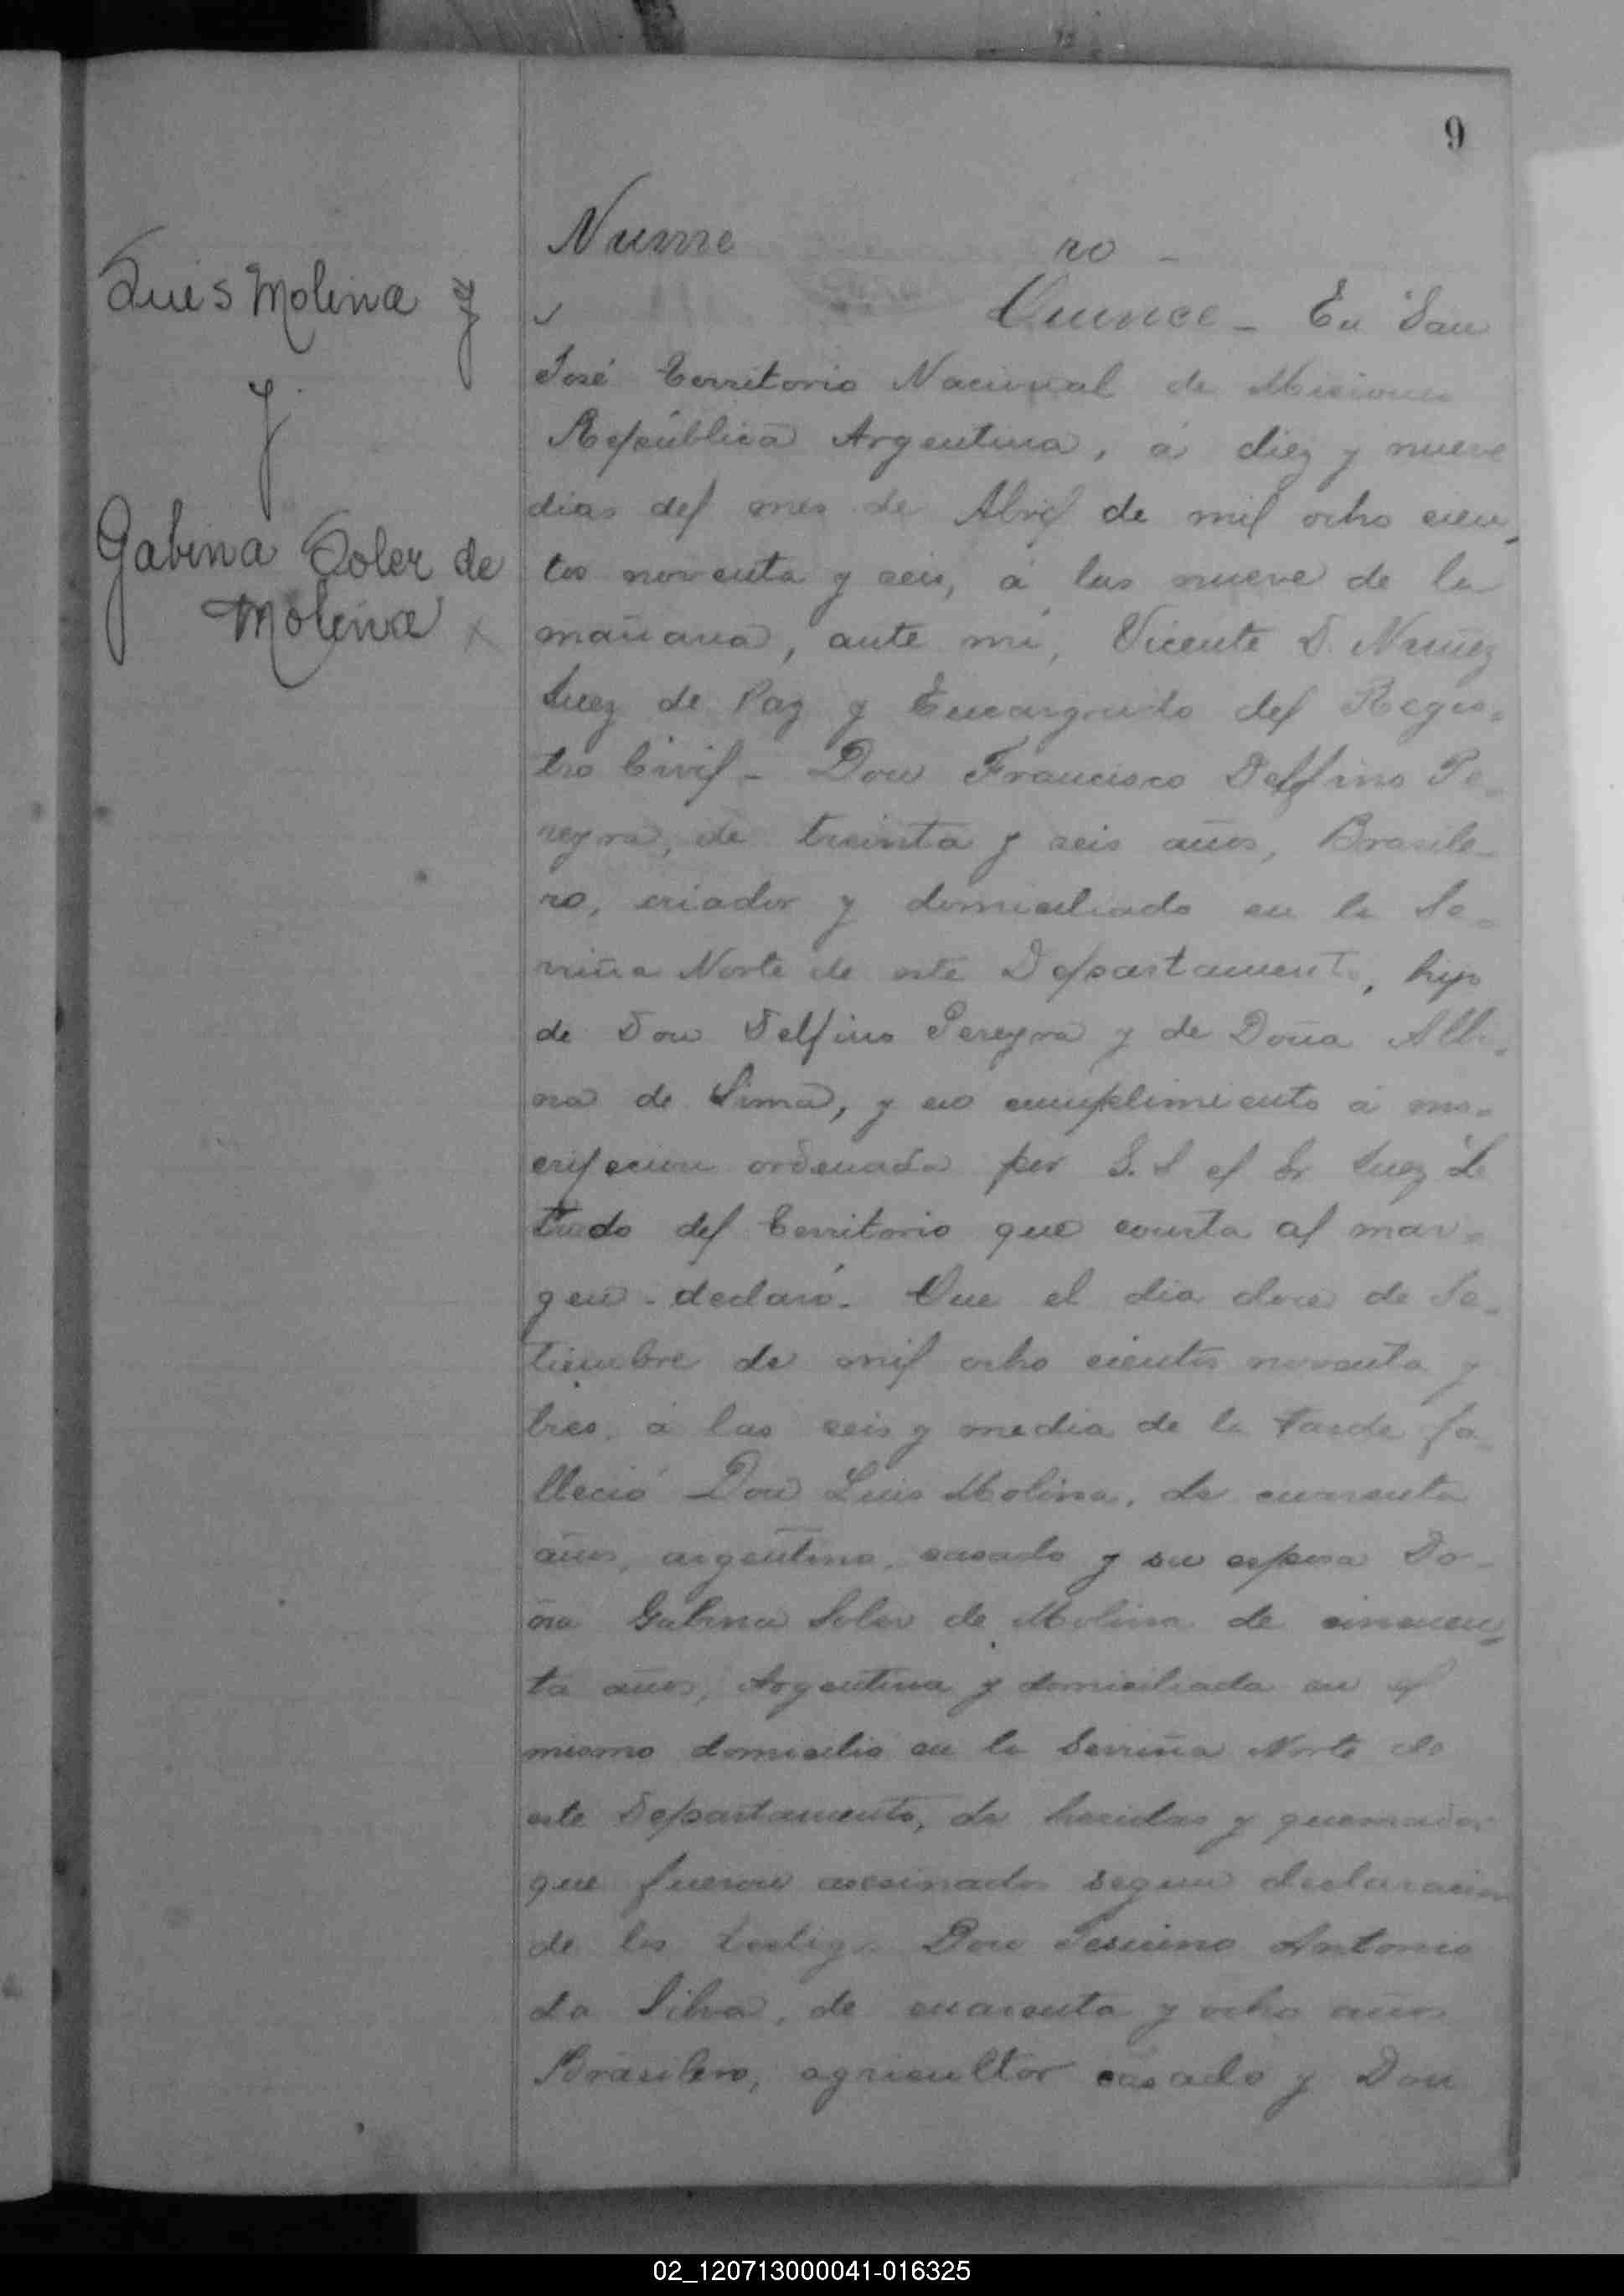 9
Luis Molina y
y
Gabina Soler de
Molina
Nume ro -
Quince - En San
José Territorio Nacional de Misiones
República Argentina, á diez y nueve
dias del mes de Abril de mil ocho cien,
tos noventa y seis, á las nueve de la
mañana, ante mi, Vicente D. Nuñez
Juez de Paz y Encargado del Regis-
tro Civil - Don Francisco Delfino Pe-
reyra, de treinta y seis años, Brasile-
ro, criador y domiciliado en la Se-
rriña Norte de este Departamento, hijo
de Don Delfino Pereyra y de Doña Albi-
na de Lima, y en cumplimiento á ins-
cripcion ordenada por S.S el Sr Juez Le
trado del Territorio que consta al mar-
gen - declaró. Que el dia doce de Se-
tiembre de mil ocho cientos noventa y
tres, á las seis y media de la tarde fa-
lleció Don Luis Molina, de cuarenta
años, argentino, casado y su esposa Do-
ña Gabina Soler de Molina de cincuen-
ta años, Argentina y domiciliada en el
mismo domicilio en la Serriña Norte de
este Departamento, de heridas y quemados
que fueron asesinados segun declaracion
de los testigos Don Antonio
da Silva, de cuarenta y ocho años
Brasilero, agricultor casado y Don
02_120713000041-016325